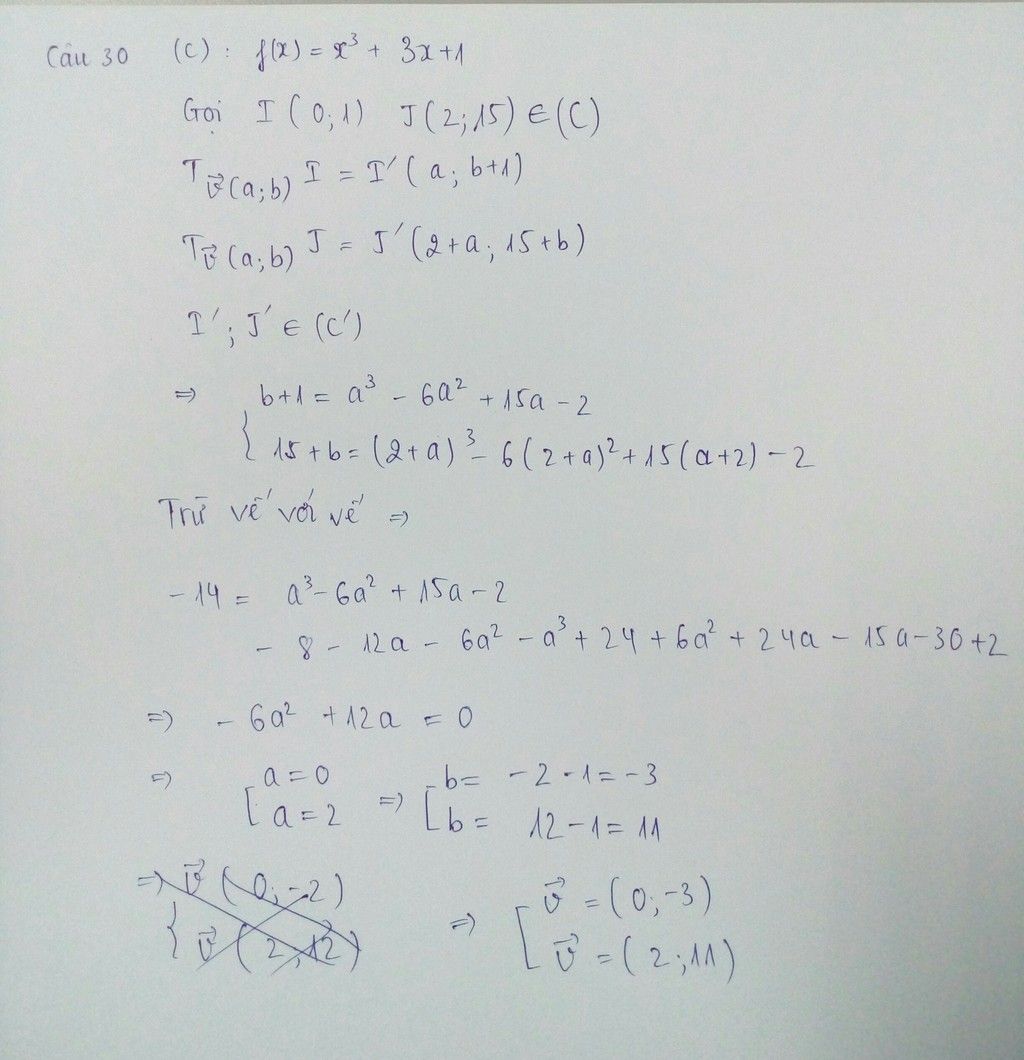 Câu 30 (C) : f(x) = x³ + 3x+1
Gọi I ( 0; 1) J ( 2; 15) ∈ (C)
T v⃗ (a; b) I = I' ( a; b+1)
T v⃗ (a; b) J = J' (2+a; 15+b)
I' ; J' ∈ (C')
⇒ { b+1 = a³ - 6a² + 15a - 2
15 + b = (2+a)³ - 6 ( 2+a)² + 15 (a+2) - 2
Trừ vế với vế ⇒
- 14 = a³ - 6a² + 15a - 2
- 8 - 12a - 6a² - a³ + 24 + 6a² + 24a - 15a - 30 + 2
⇒ - 6a² + 12a = 0
⇒ [ a = 0 ⇒ [ b = - 2 - 1 = - 3
a = 2 b = 12 - 1 = 11
⇒ { v⃗ ( 0; -2 ) ⇒ [ v⃗ = ( 0; -3 )
v⃗ ( 2; 12 ) v⃗ = ( 2; 11 )